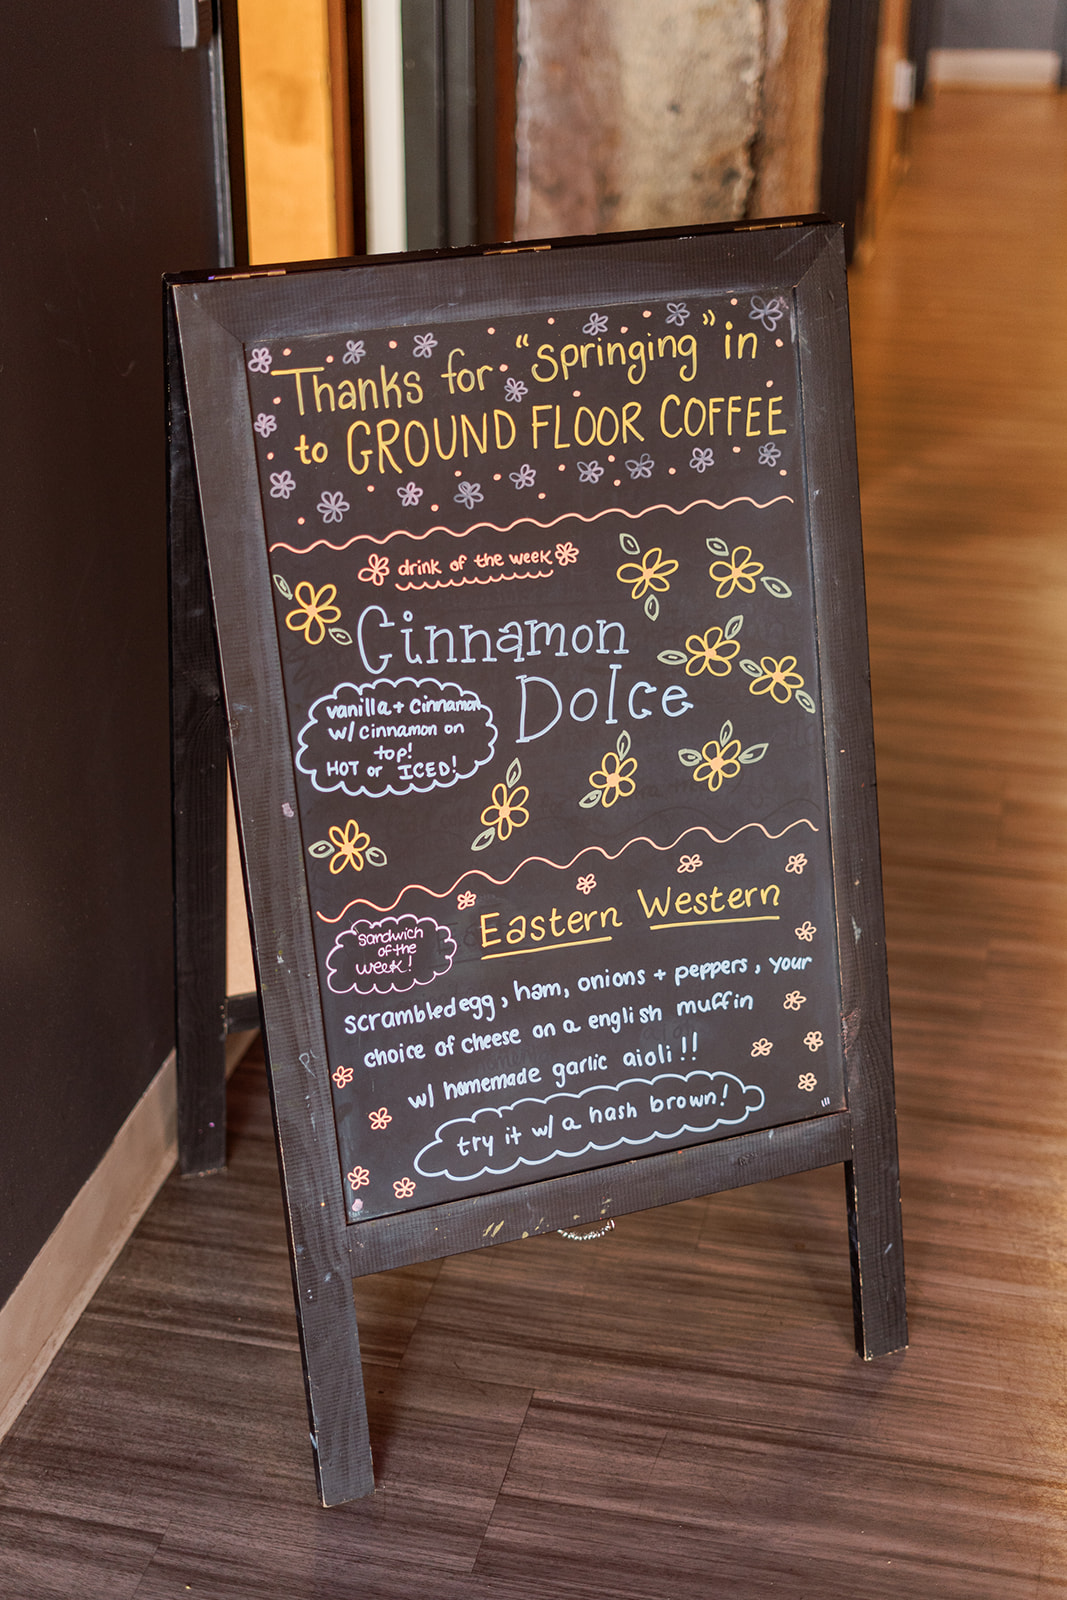 Thanks for "springing" in
to GROUND FLOOR COFFEE
drink of the week
Cinnamon
Dolce
vanilla + cinnamon
w/ cinnamon on
top!
HOT or ICED!
Sandwich
of the
week!
Eastern Western
scrambled egg, ham, onions + peppers, your
choice of cheese on a english muffin
w/ homemade garlic aioli!!
try it w/ a hash brown!